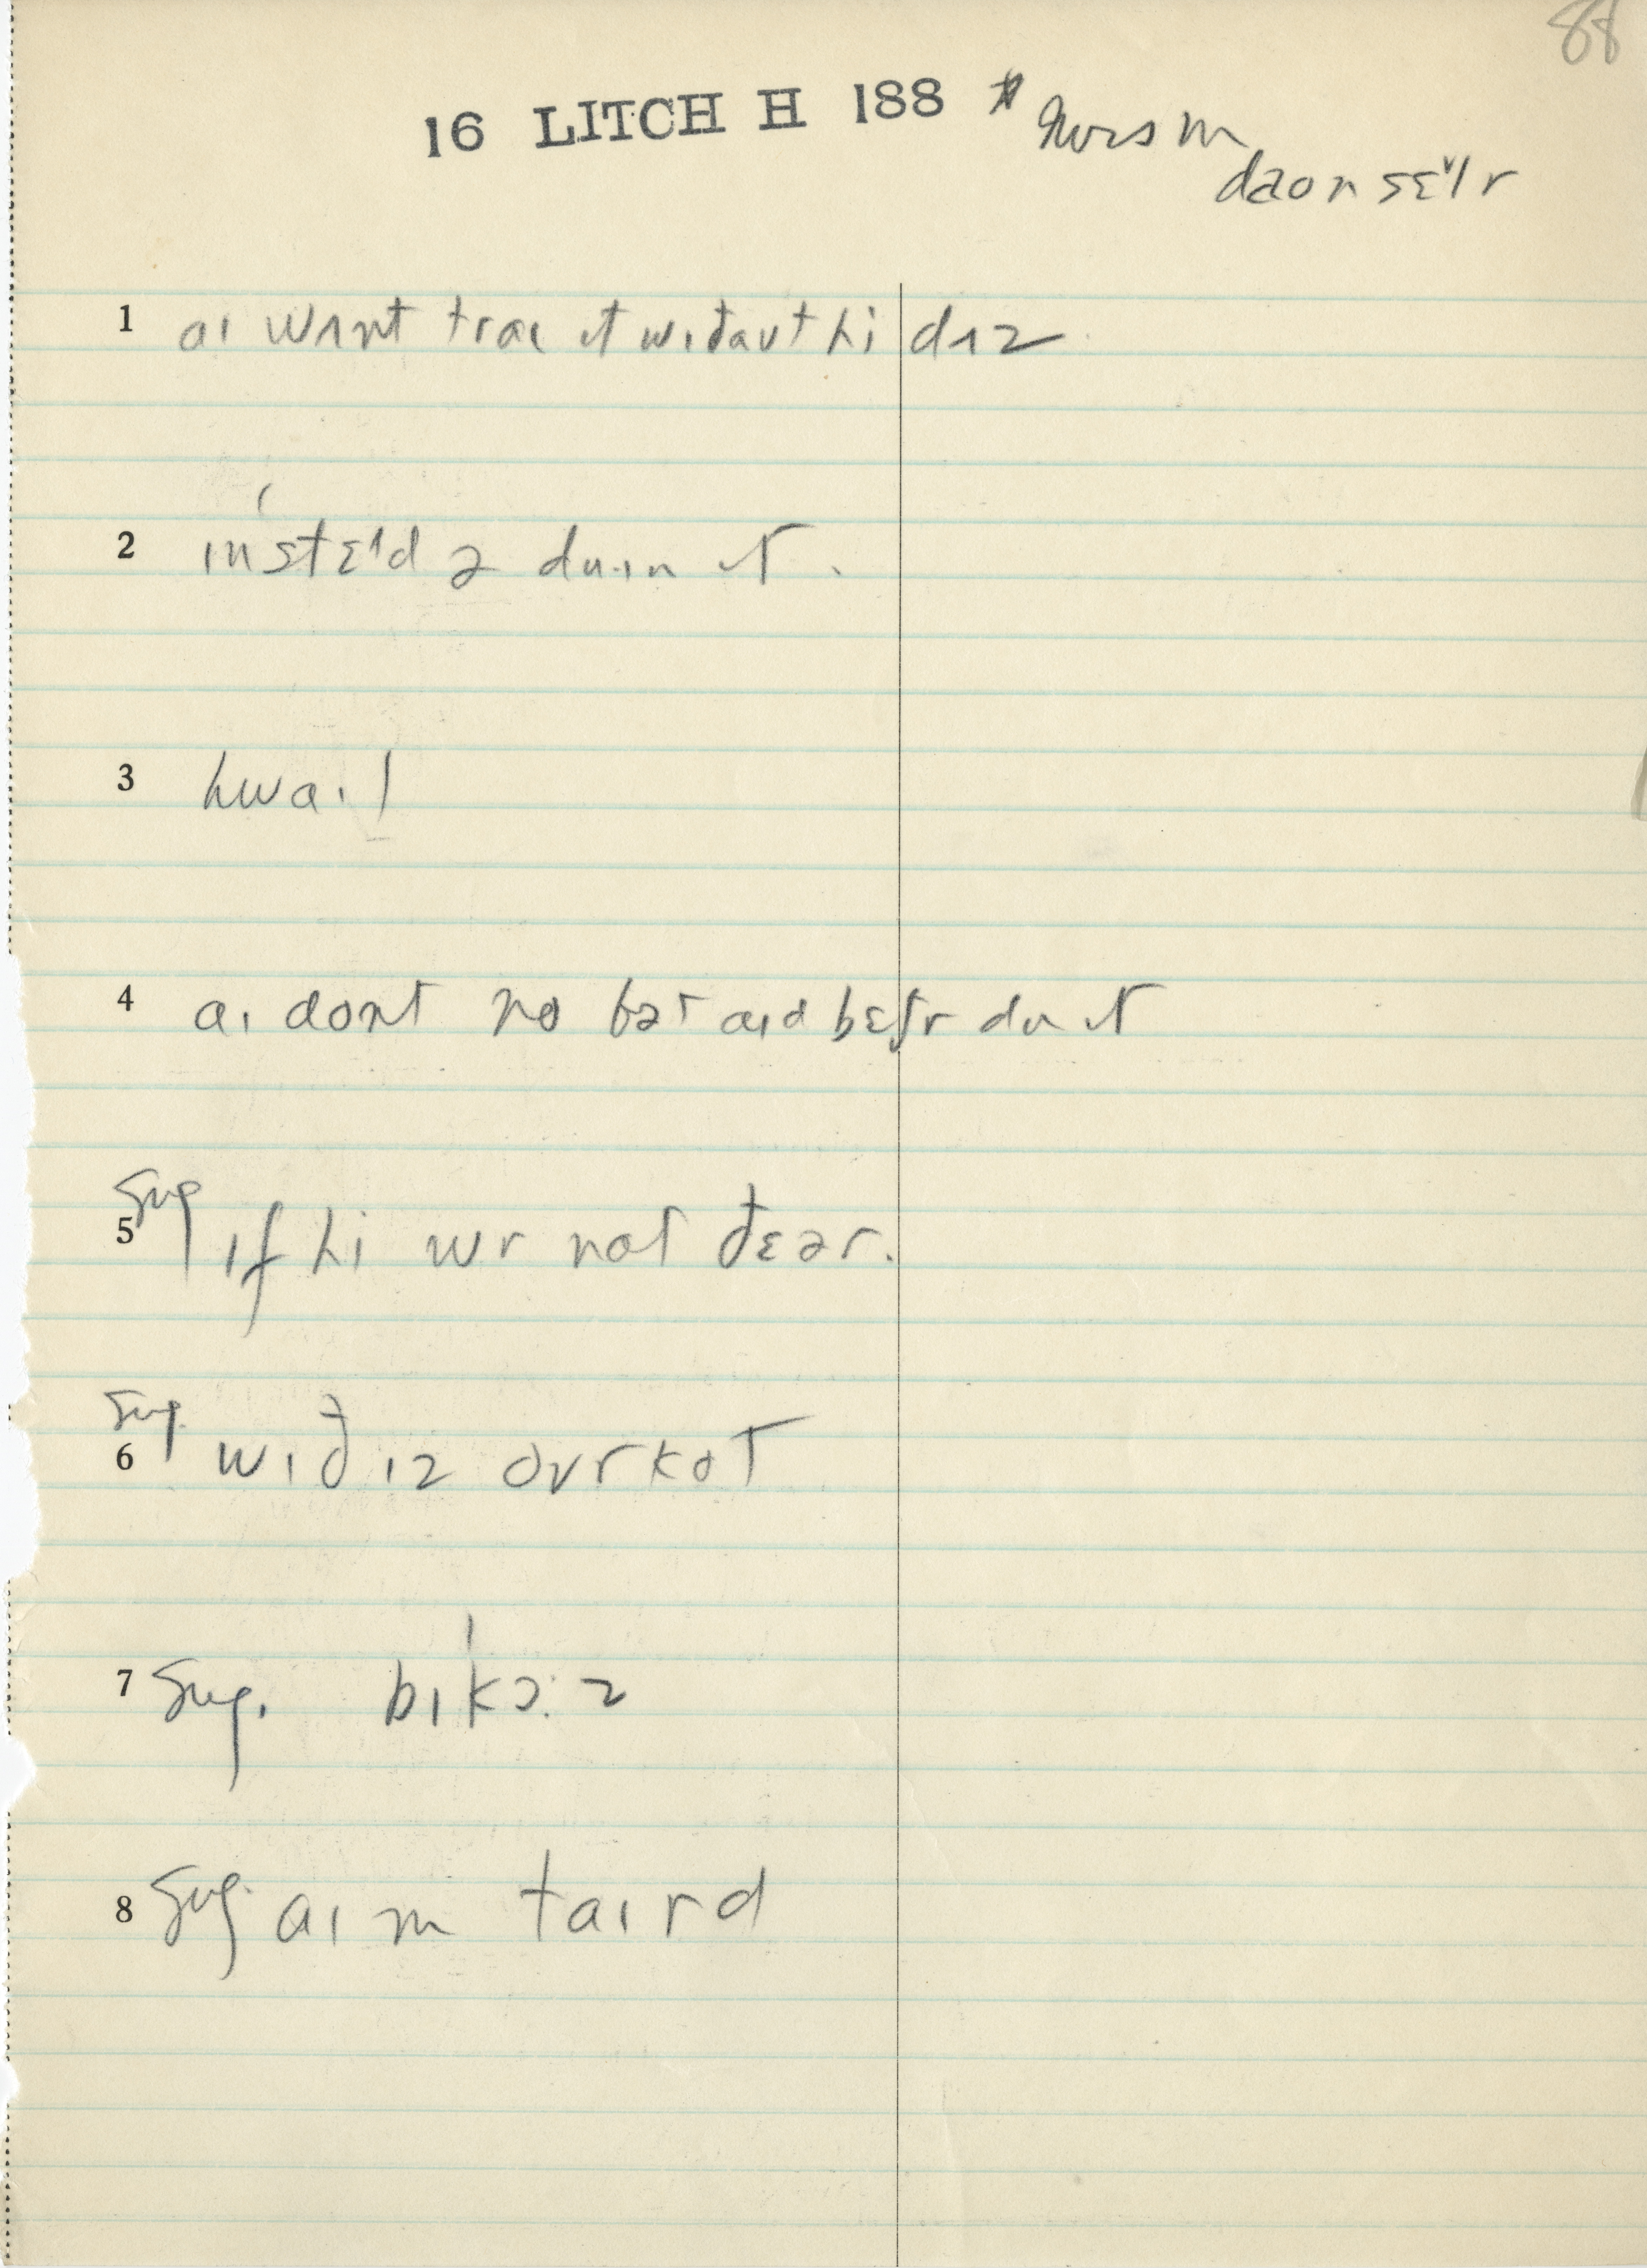 88
16 LITCH H 188
daon sɛᵛlr
1 aɪ wʌnt traɪ ɪt wɪđaut hi dʌz
2 ɪnˈstɛᶦd ə duɪn ɪt.
3 hwaɪl
4 aɪ dont no ðət aɪd bɛtr du ɪt
Sug
5 ɪf hi wr nat đɛər.
Sug.
6 wɪđ ɪz ovrkot
7 Sug. bɪˈkɔːz
8 Sug. aɪm taɪrd